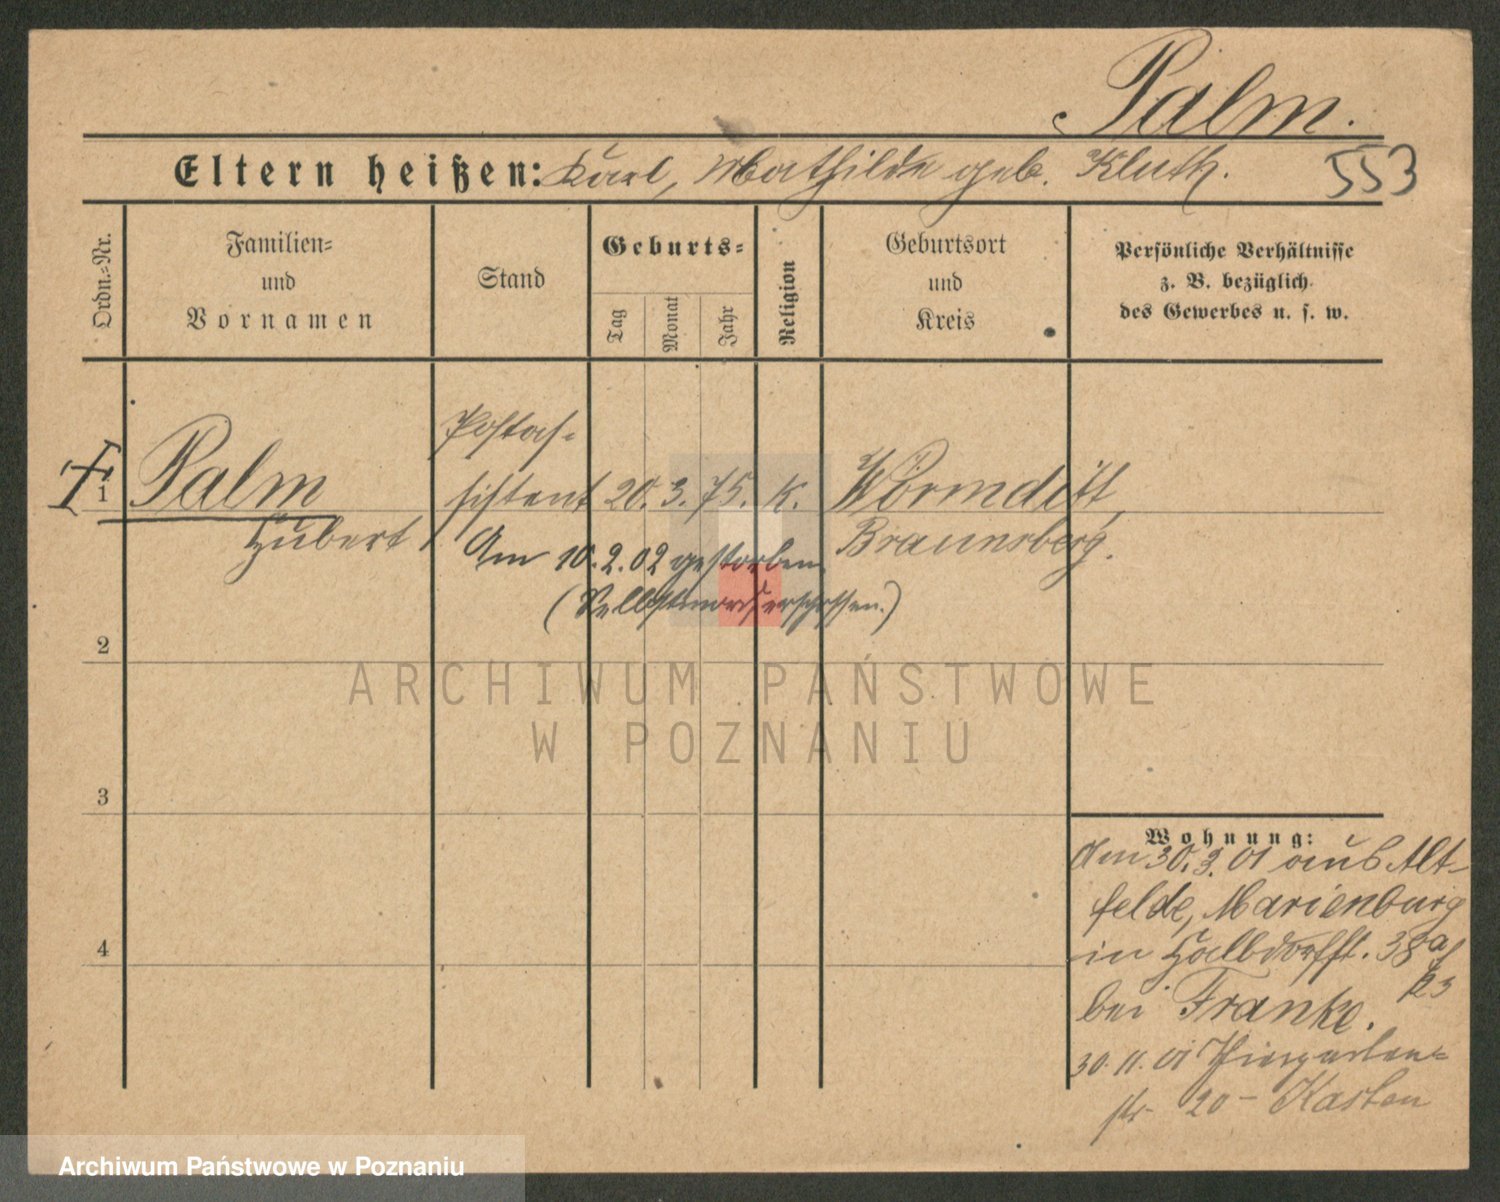 Palm.
Eltern heißen: Karl, Mathilde geb. Kluth.
553
Ordn.-Nr.
Familien-
und
Vornamen
Stand
Geburts-
Tag
Monat
Jahr
Religion
Geburtsort
und
Kreis
Persönliche Verhältnisse
z. B. bezüglich
des Gewerbes u. s. w.
1
Palm
Hubert
Postas-
sistent
20. 3. 75. K.
Wormditt,
Braunsberg.
Am 10.2.02 gestorben
(Selbstmord erschossen.)
2
3
4
ARCHIWUM PAŃSTWOWE
W POZNANIU
Wohnung:
Am 30.3.01 aus Alt-
felde, Marienburg
in Halbdorfst. 38a
bei Franke.
30.11.01 Thiergarten-
str. 20 - Kasten
Archiwum Państwowe w Poznaniu